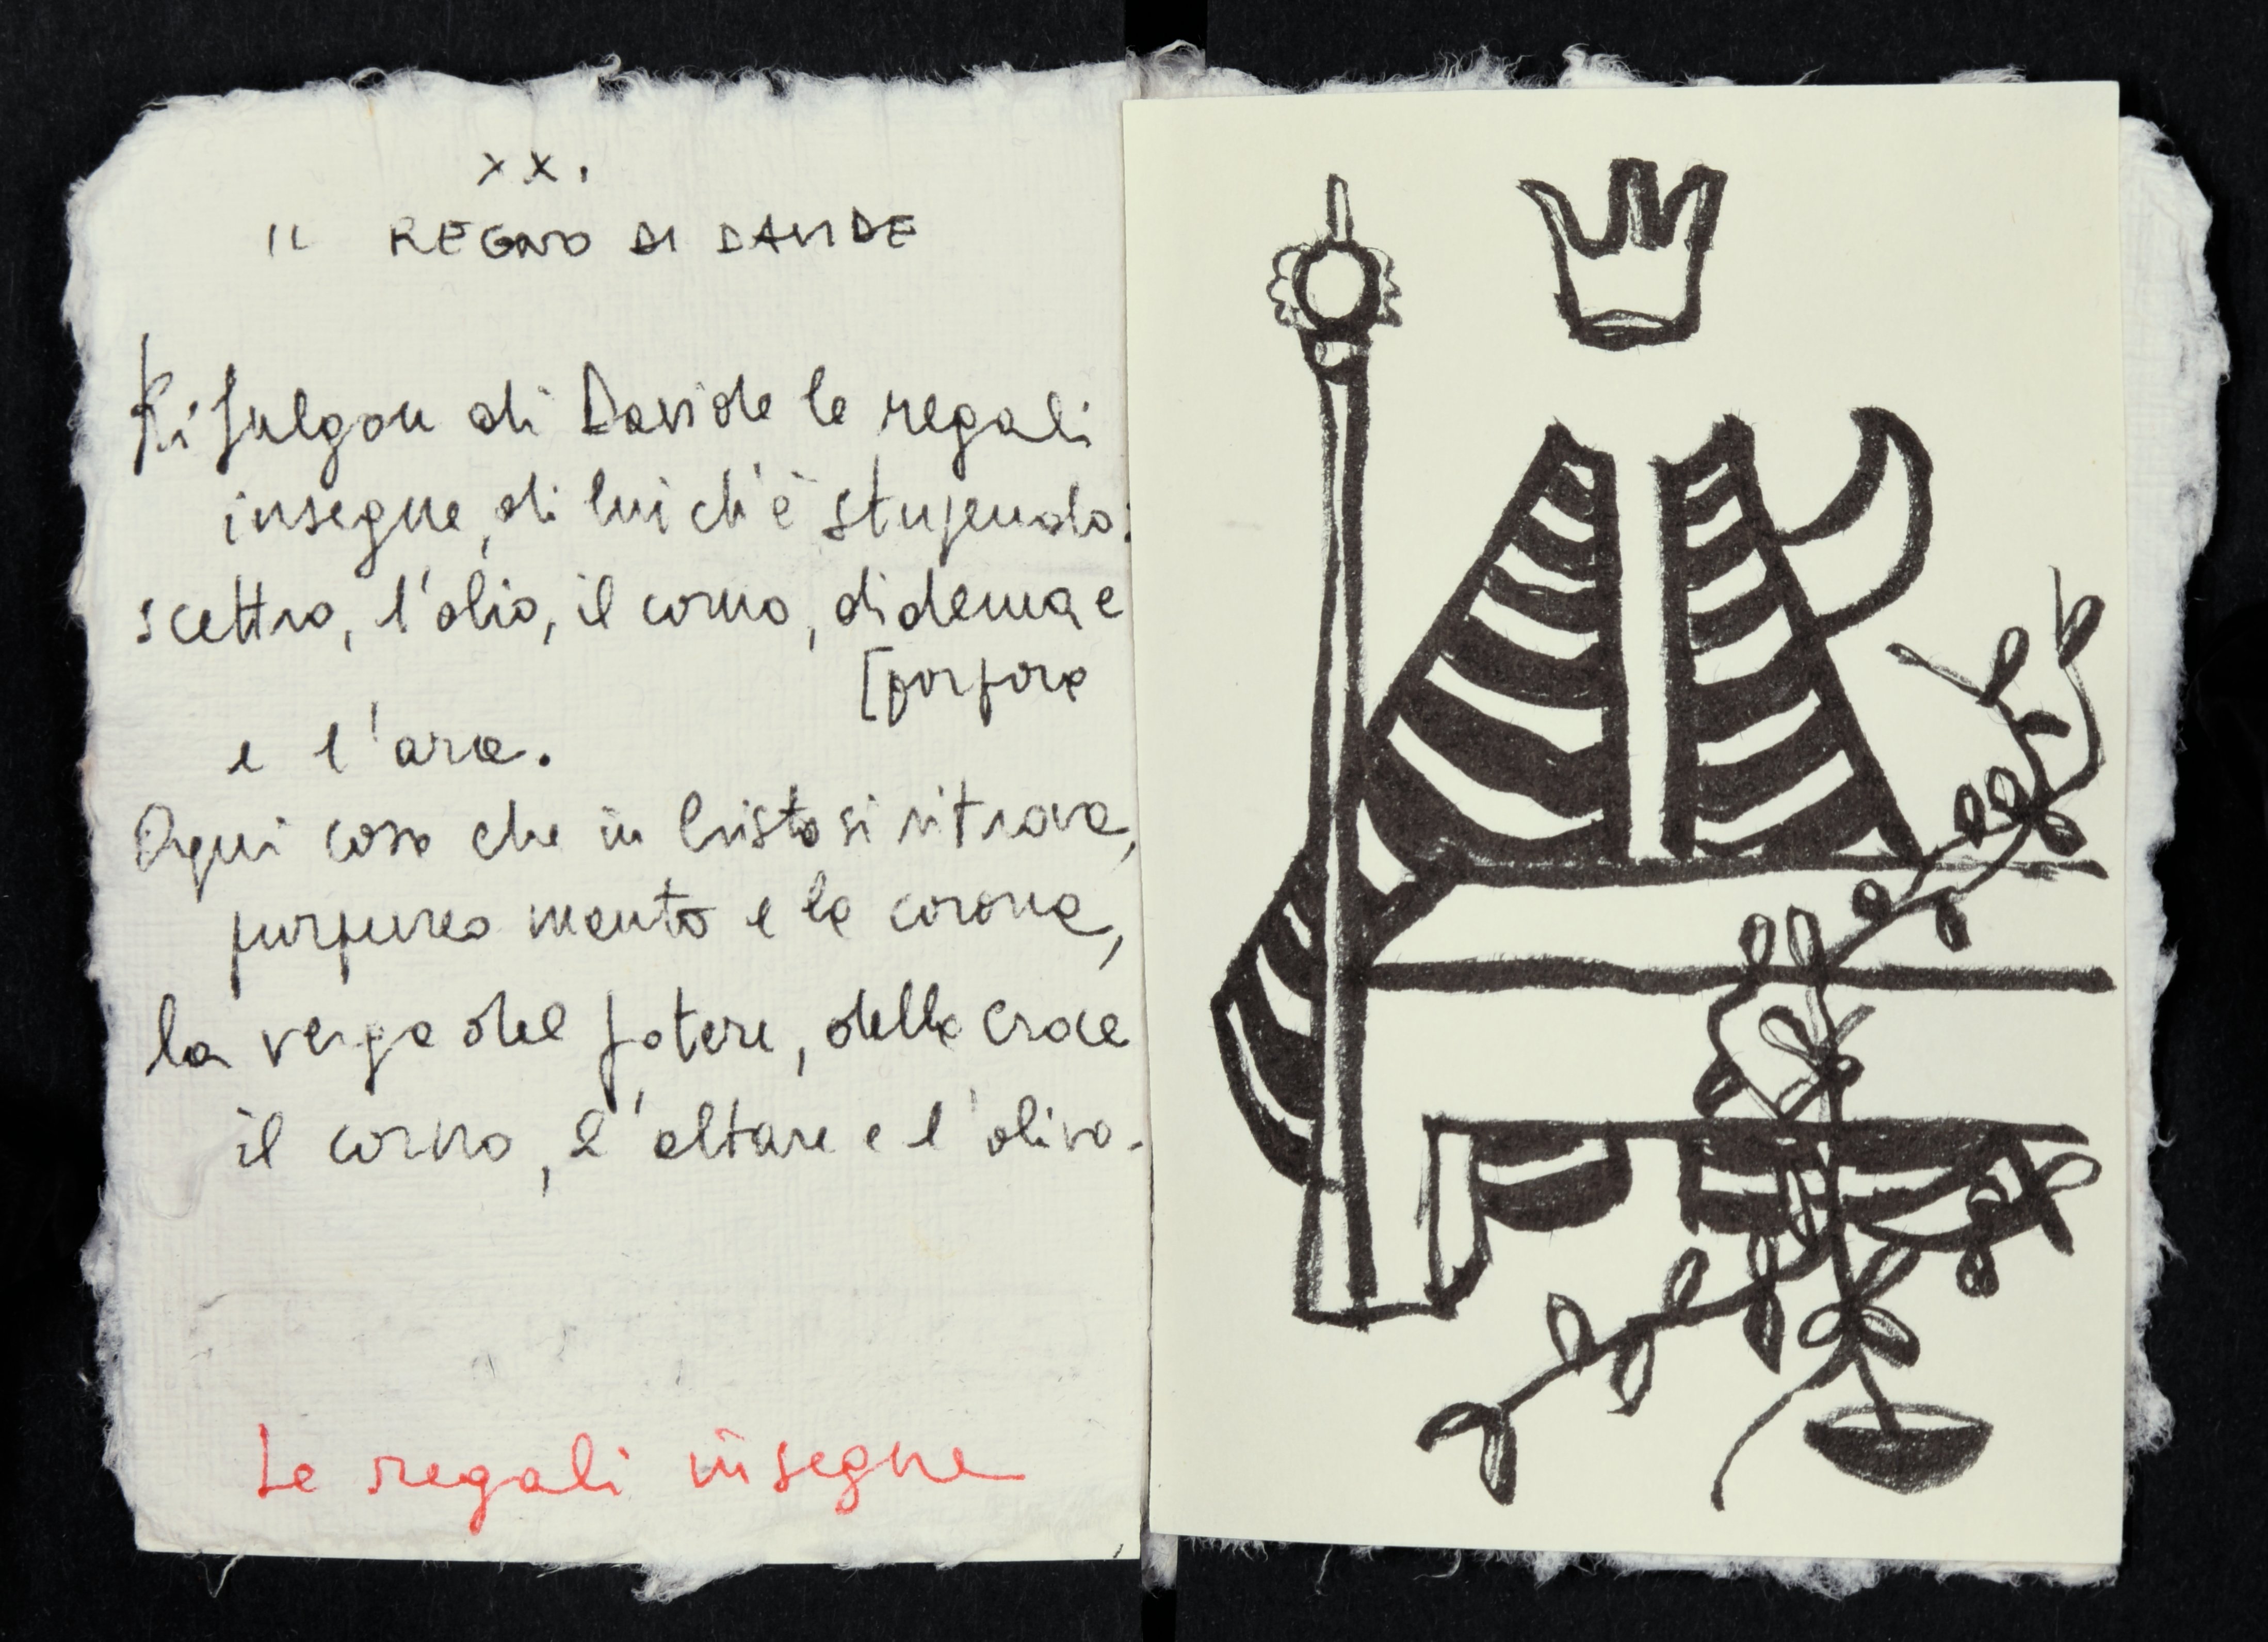 XX.
IL REGNO DI DAVIDE
Rifulgon di Davide le regali
insegne, di lui ch'è stupendo:
scettro, l'olio, il corno, didema e
[porpora
e l'ara.
Ogni cosa che in Cristo si ritrova,
purpureo manto e la corona,
la verga del potere, della Croce
il corno, l'altare e l'olivo.
Le regali insegne